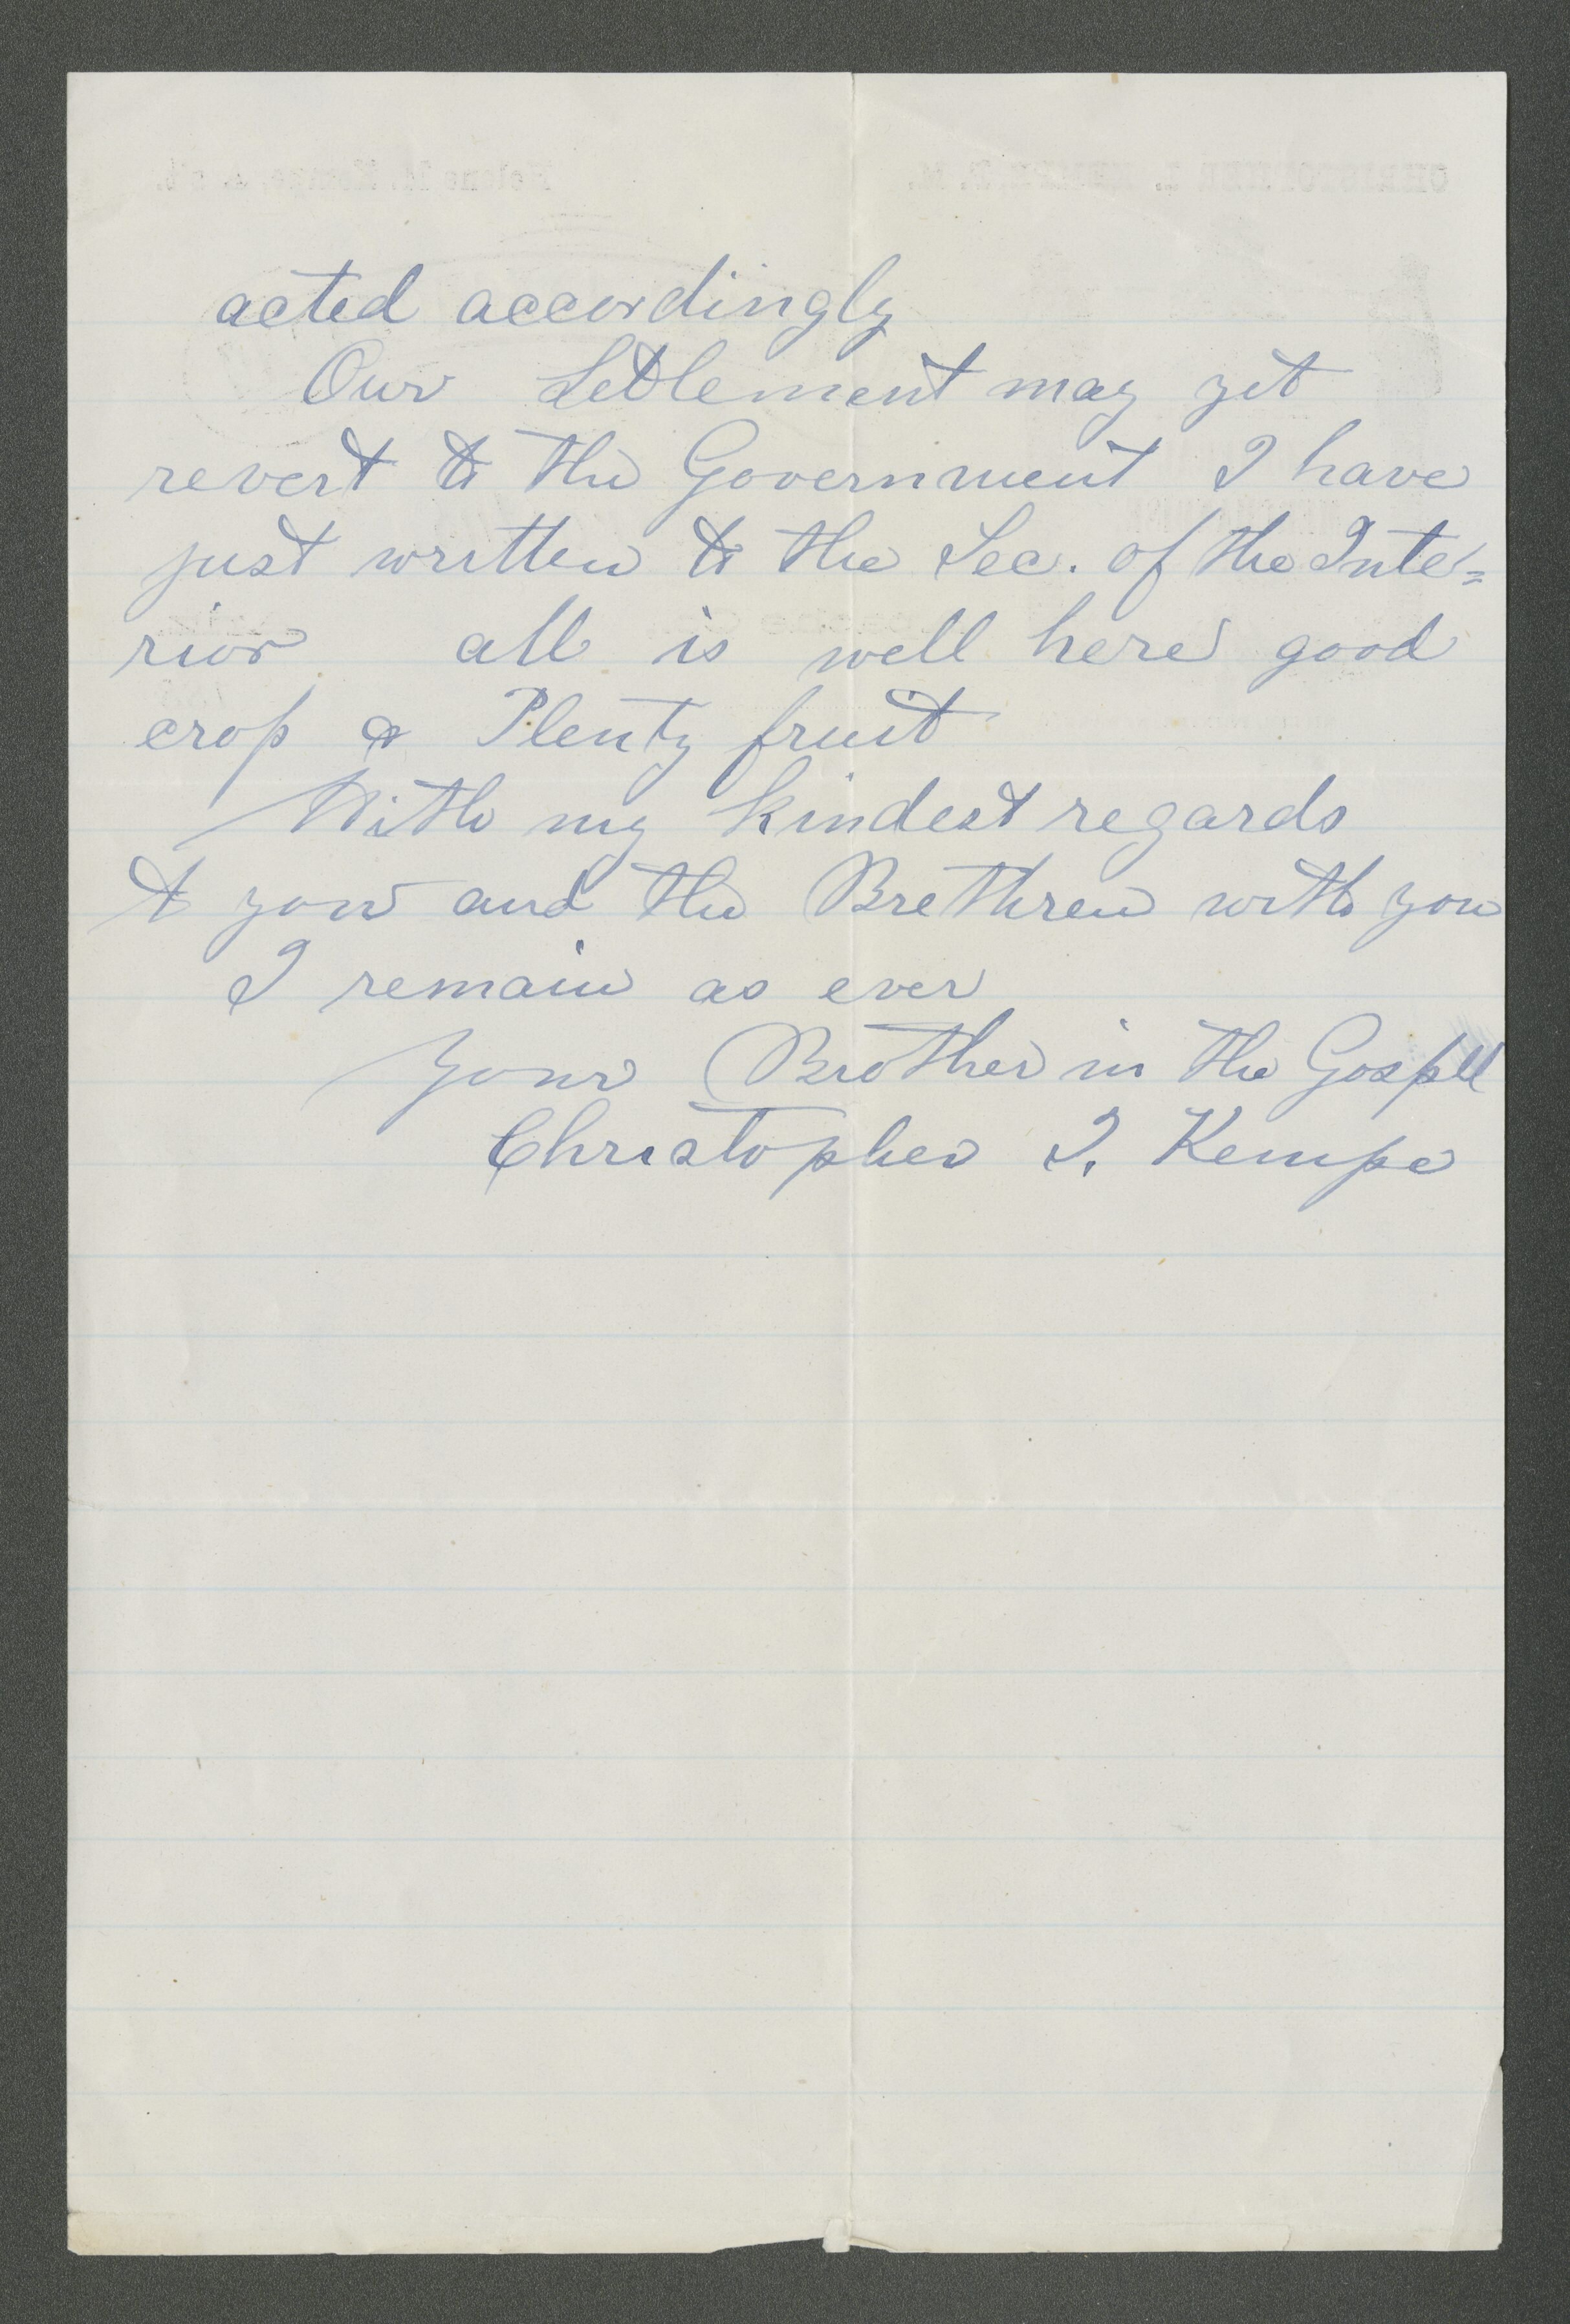 acted accordingly
Our Settlement may yet
revert to the Government I have
just written to the Sec. of the Inte=
rior all is well here good
crop & Plenty fruit
With my kindest regards
to you and the Brethren with you
I remain as ever
Your Brother in the Gospel
Christopher I. Kempe